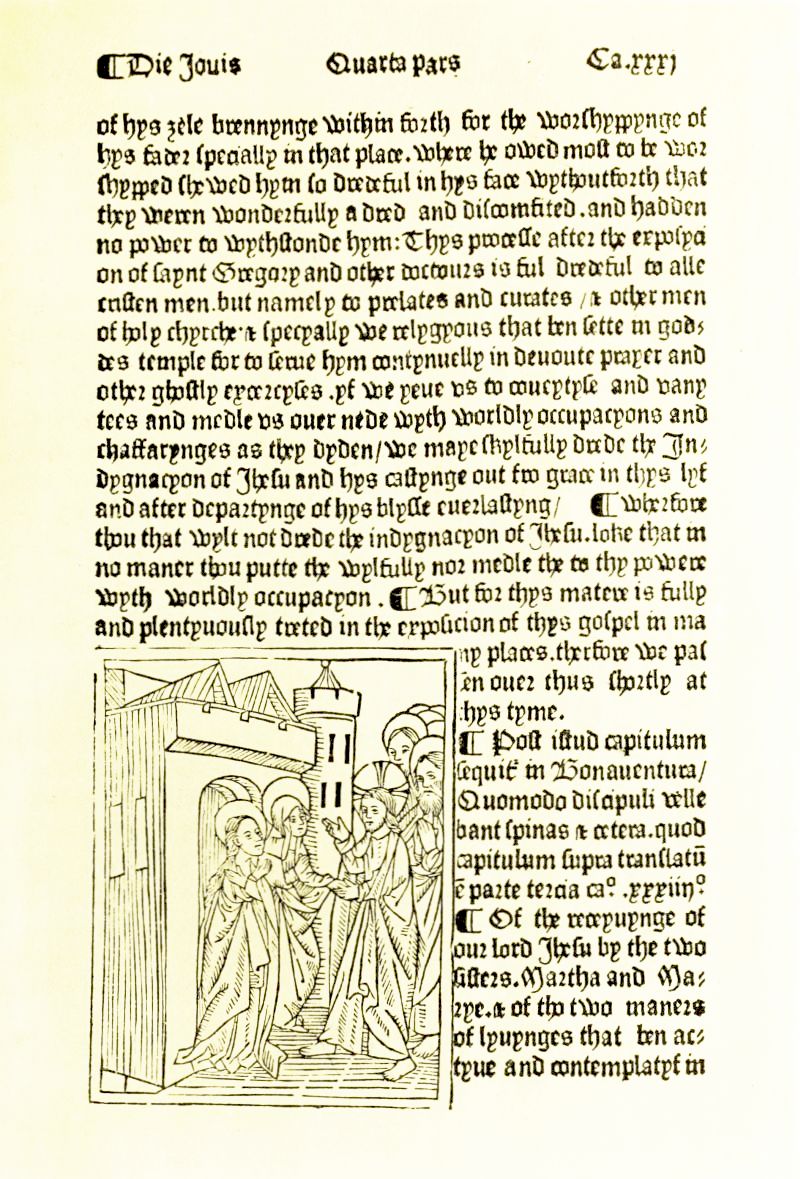 ¶Die Jouis Quarta pars Ca.xxxj
of hys zele brennynge within forth for the worshyppynge of
hys fader specially in that place. where he owed most to be wor
shypped shewed hym so dredeful in hys face wythoutforth that
they weren wonderfully a dred and discomfited. and hadden
no power to wythstonde hym: Thys processe after the exposyci
on of saynt Gregory and other doctours is ful dredeful to alle
cristen men. but namely to prelates and curates / & other men
of holy chyrche· & specyally we relygyous that ben sette in god⸗
des temple for to serue hym contynuelly in deuoute prayer and
other ghostly exercyses. yf we yeue vs to coueytyse and vany
tees and medle vs ouer nede wyth worldly occupacyons and
chaffarynges as they dyden/ we maye skylfully drede the In⸗
dygnacyon of Jhesu and hys castynge out fro grace in thys lyf
and after departynge of hys blysse euerlastyng/ ¶Wherfore
thou that wylt not drede the indygnacyon of Jhesu. loke that in
no maner thou putte the wylfully nor medle the to thy powere
wyth worldly occupacyon. ¶But for thys matere is fully
and plentyuously treted in the exposicion of thys gospel in ma
ny places. therfore we pas
sen ouer thus shortly at
thys tyme.
¶ Post istud capitulum
sequit᷑ in Bonauentura/
Quomodo discipuli velle
bant spinas & cetera. quod
capitulum supra translatū
ē parte tercia caº. xxxiiijº
¶ Of the receyuynge of
our lord Jhesu by the two
sisters. Martha and Ma⸗
rye. & of tho two maners
of lyuynges that ben ac⸗
tyue and contemplatyf in